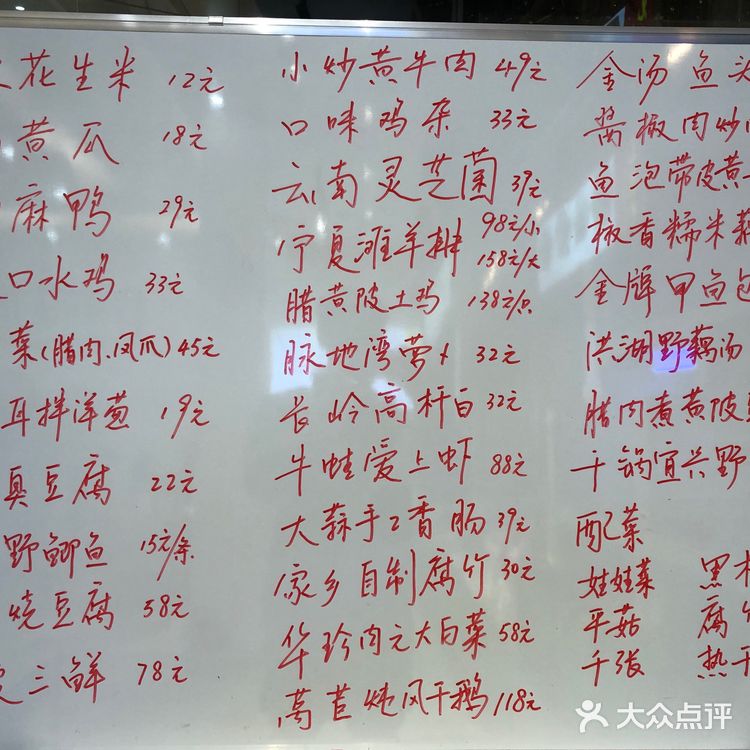 花生米 12元
黄瓜 18元
麻鸭 29元
口水鸡 33元
菜(腊肉、凤爪)45元
耳拌洋葱 19元
臭豆腐 22元
野鲫鱼 15元/条
烧豆腐 58元
三鲜 78元
小炒黄牛肉 49元
口味鸡杂 33元
云南灵芝菌 39元
宁夏滩羊排 98元/小 158元/大
腊黄陂土鸡 138元/只
脉地湾萝卜 32元
长岭高杆白 32元
牛蛙爱上虾 88元
大蒜手工香肠 39元
家乡自制腐竹 30元
华珍肉元大白菜 58元
莴苣炖风干鹅 118元
金汤鱼头
酱椒肉炒
鱼泡带皮黄
椒香糯米藕
金牌甲鱼
洪湖野藕汤
腊肉煮黄陂
干锅宜兴野
配菜
娃娃菜 黑木
平菇 腐竹
千张 热干
大众点评